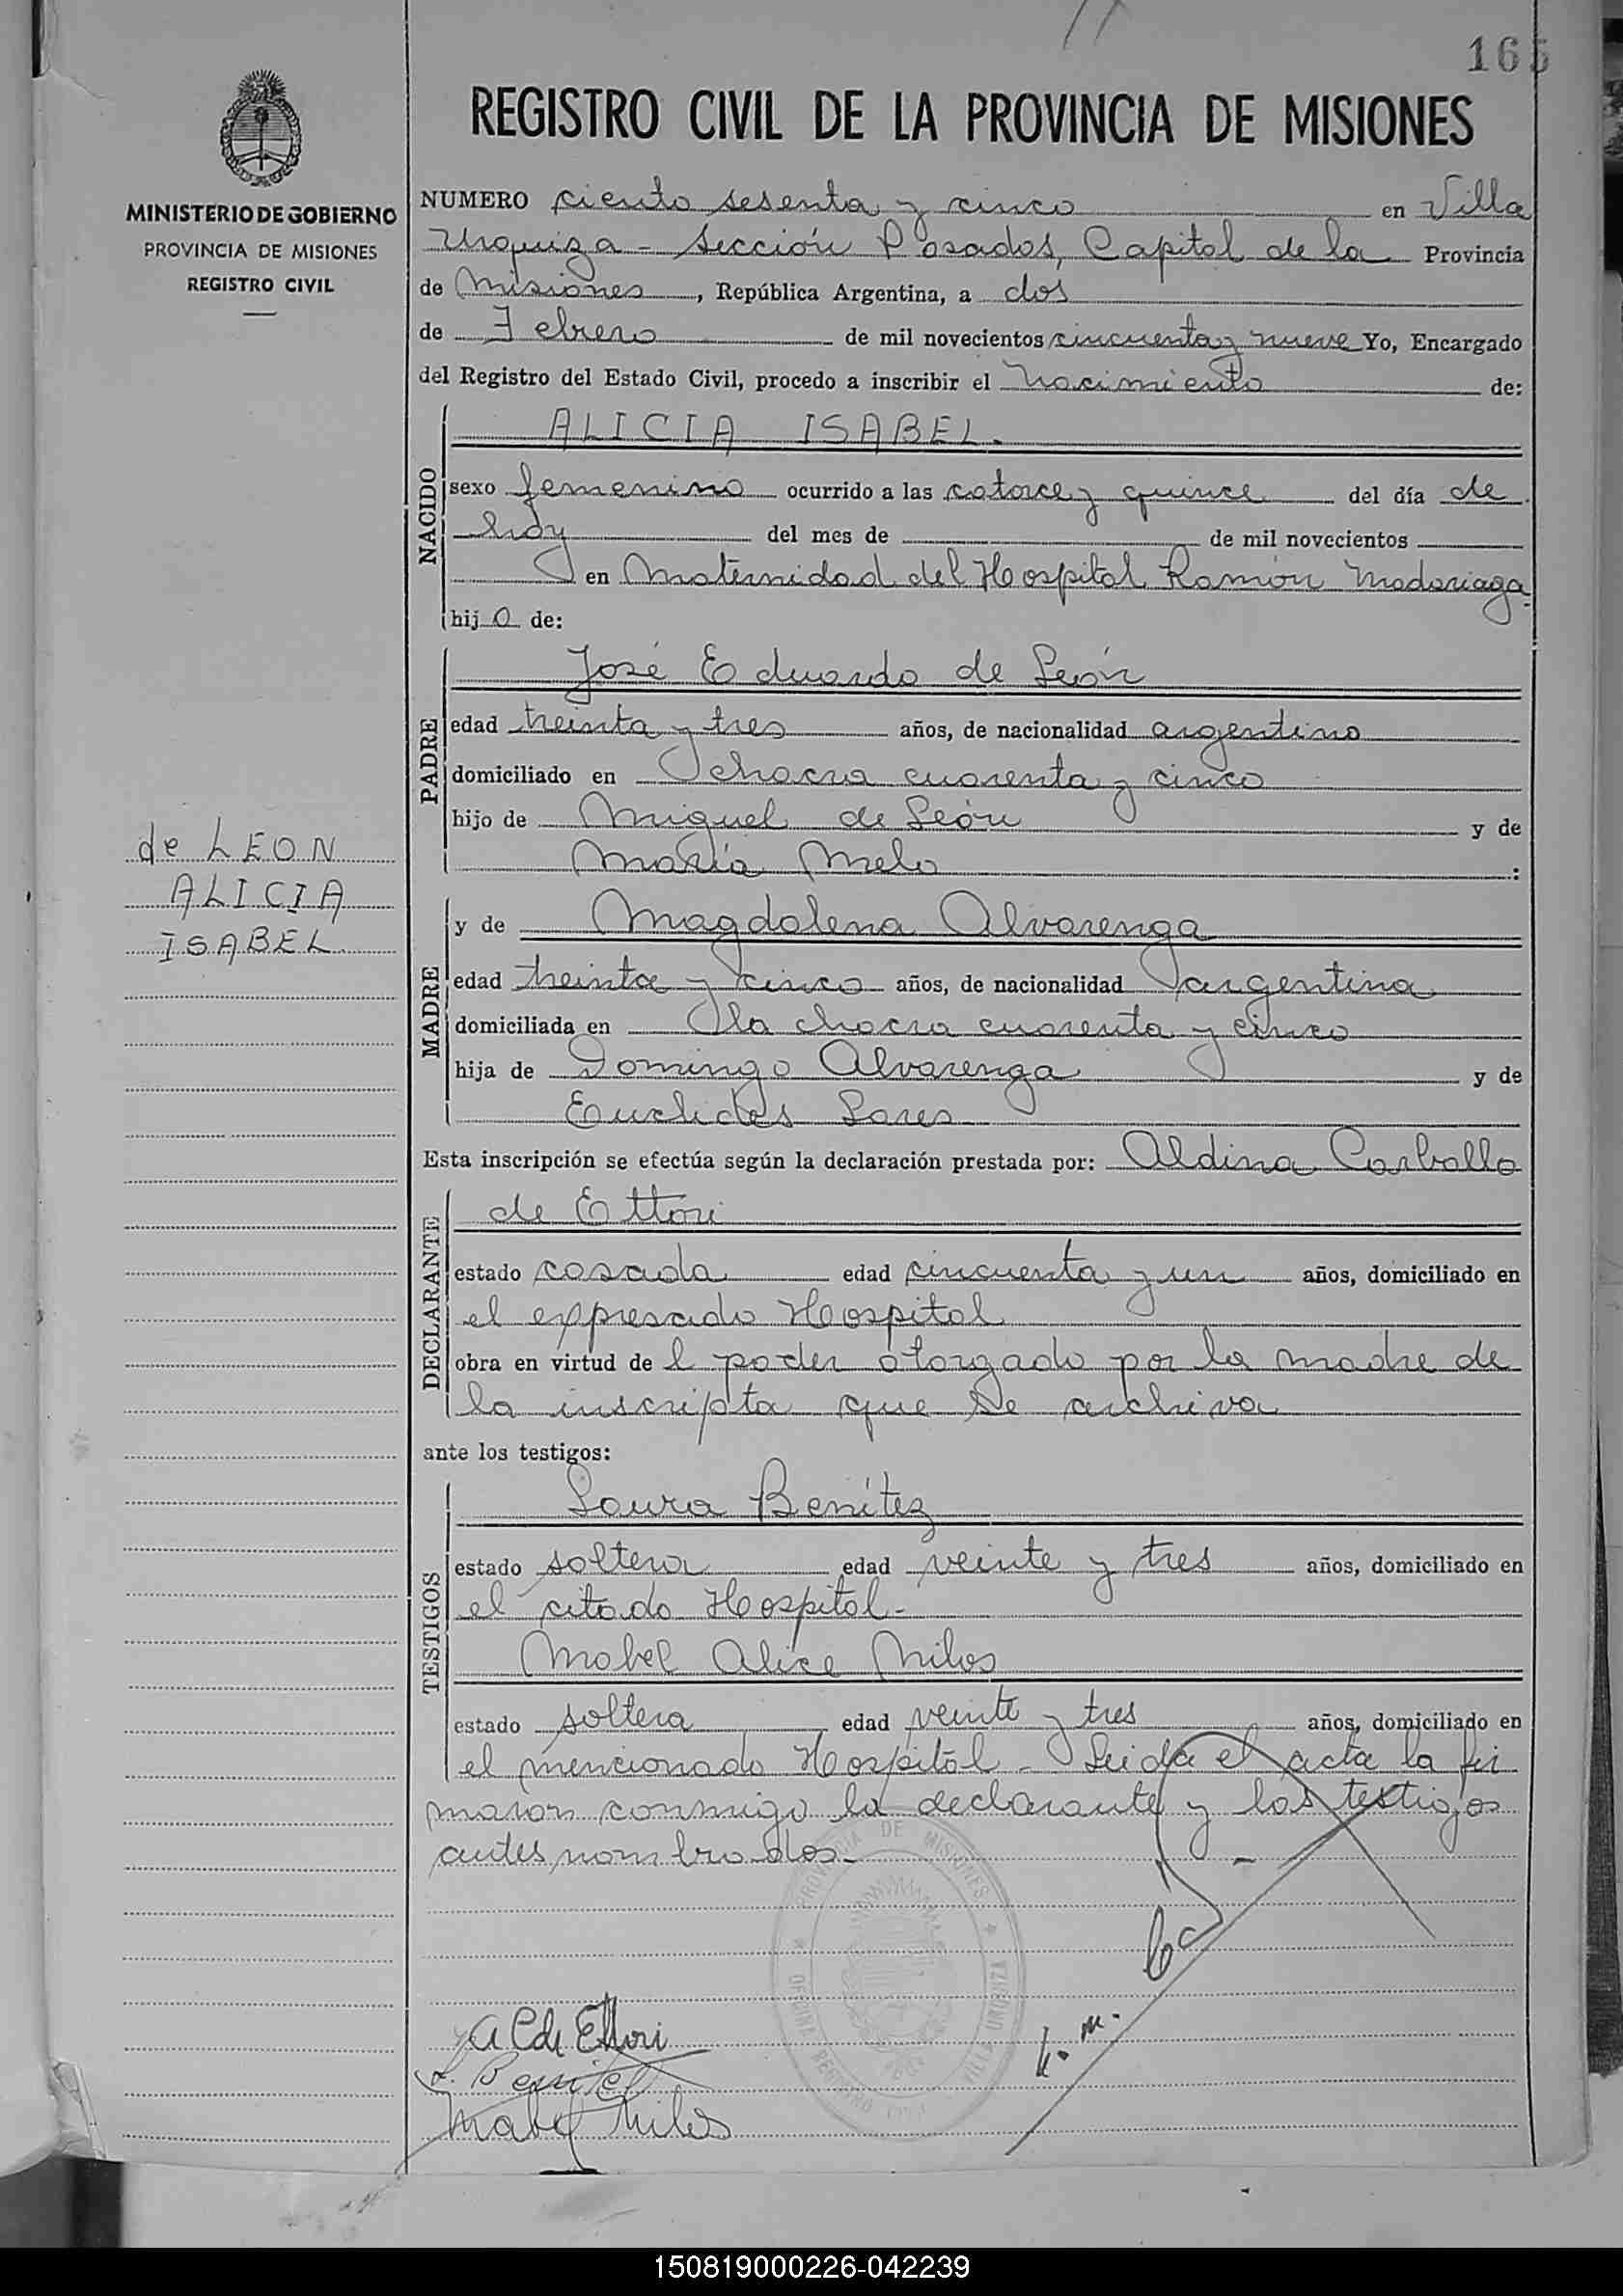 165
REGISTRO CIVIL DE LA PROVINCIA DE MISIONES
MINISTERIO DE GOBIERNO
PROVINCIA DE MISIONES
REGISTRO CIVIL
NUMERO ciento sesenta y cinco en Villa
Urquiza - Sección Posadas, Capital de la Provincia
de Misiones, República Argentina, a dos
de Febrero de mil novecientos cincuenta y nueve Yo, Encargado
del Registro del Estado Civil, procedo a inscribir el nacimiento de:
NACIDO
ALICIA ISABEL.
sexo femenino ocurrido a las catorce y quince del día de
hoy del mes de de mil novecientos
en Maternidad del Hospital Ramón Madariaga.
hija de:
PADRE
José Eduardo de León
edad treinta y tres años, de nacionalidad argentino
domiciliado en chacra cuarenta y cinco
hijo de Miguel de León y de
María Melo :
de LEON
ALICIA
ISABEL
MADRE
y de Magdalena Alvarenga
edad treinta y cinco años, de nacionalidad argentina
domiciliada en la chacra cuarenta y cinco
hija de Domingo Alvarenga y de
Euclides Sares
Esta inscripción se efectúa según la declaración prestada por: Aldina Carballo
DECLARANTE
de Ettori
estado casada edad cincuenta y un años, domiciliado en
el expresado Hospital
obra en virtud del poder otorgado por la madre de
la inscripta que se archiva
ante los testigos:
TESTIGOS
Laura Benítez
estado soltera edad veinte y tres años, domiciliado en
el citado Hospital -
Mabel Alice Milos
estado soltera edad veinte y tres años, domiciliado en
el mencionado Hospital - Leida el acta la fir
maron conmigo la declarante y los testigos
antes nombrados. -
PROVINCIA DE MISIONES
OFICINA REGISTRO CIVIL VILLA URQUIZA
A C de Ettori
L. Benitez
Mabel Milos
150819000226-042239